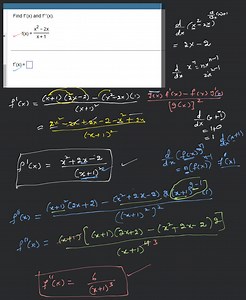 Find f'(x) and f''(x).
f(x) = x² - 2x / x + 1
f'(x) =
d/dx (x² - 2x)
= 2x - 2
d/dx xⁿ = nxⁿ⁻¹
f'(x) = (x+1)(2x-2) - (x²-2x)(1) / (x+1)²
g(x) f'(x) - f(x) g'(x) / [g(x)]²
= 2x² - 2x + 2x - 2 - x² + 2x / (x+1)²
d/dx (x+1)
= 1+0
= 1
f'(x) = x² + 2x - 2 / (x+1)² ✓
f''(x) = (x+1)²(2x+2) - (x²+2x-2) 2(x+1)²⁻¹ / ((x+1)²)²
f''(x) = (x+1) [(x+1)(2x+2) - (x²+2x-2) 2] / (x+1)⁴ ³
f''(x) = 6 / (x+1)³ ✓